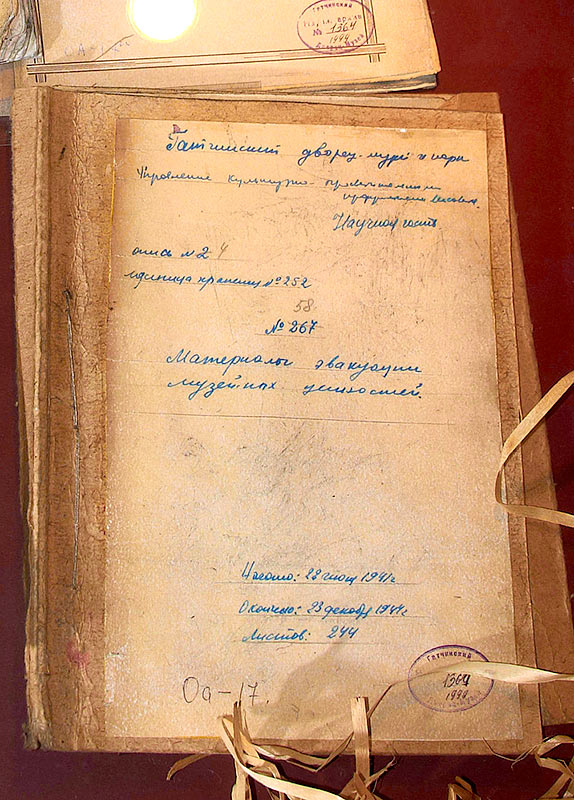 Гатчинский
№ 1364
1999
Гатчинский дворец-музей и парк
Управление культурно-просветительными
Научная часть
опись № 2 4
единица хранения № 252
58
№ 267
Материалы эвакуации
музейных ценностей.
Начато: 22 июня 1941 г
Окончено: 23 декабря 1944 г
Листов: 244
Гатчинский
1364
1999
Оа-17.